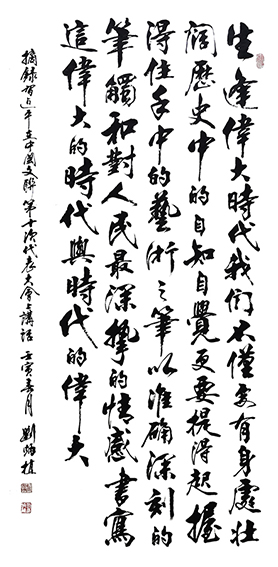 生逢偉大時代我們不僅要有身處壯
闊歷史中的自知自覺更要提得起握
得住手中的藝術之筆以准確深刻的
筆觸和對人民最深摯的情感書寫
這偉大的時代與時代的偉大
摘錄習近平在中國文聯第十次代表大會上講話 壬寅春月 劉